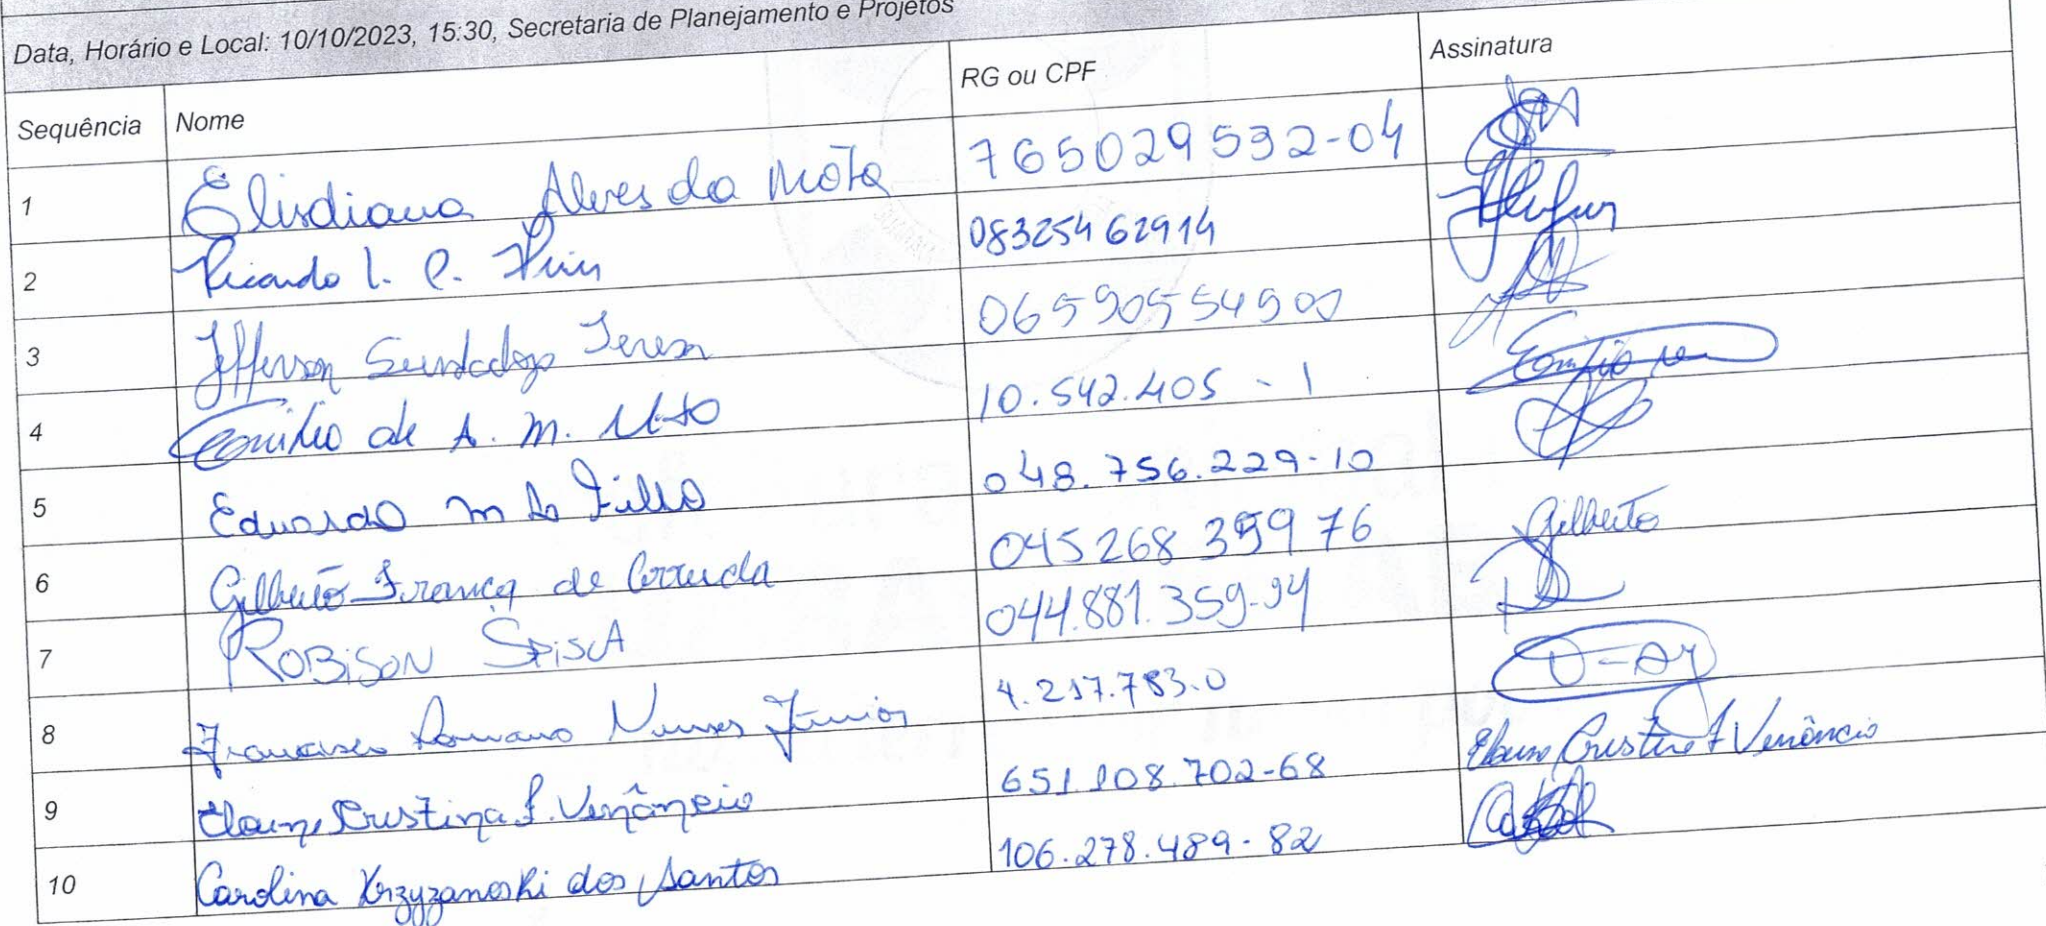 Data, Horário e Local: 10/10/2023, 15:30, Secretaria de Planejamento e Projetos
Sequência Nome RG ou CPF Assinatura
1 Elisdiana Alves da Mota 765029532-04
2 Ricardo I. C. 08325462914
3 Jefferson 06590554900
4 Emilio de A. M. 10.542.405-1 Emilio
5 Eduardo M Filho 048.756.229-10
6 Gilberto França de Arruda 04526839976 Gilberto
7 ROBISON SPISLA 044.881.359-94
8 Francisco Romano Nunes Júnior 4.217.783.0
9 Elaine Cristina F. Venâncio 651.108.702-68 Elaine Cristina F Venâncio
10 Carolina Krzyzanoski dos Santos 106.278.489-82